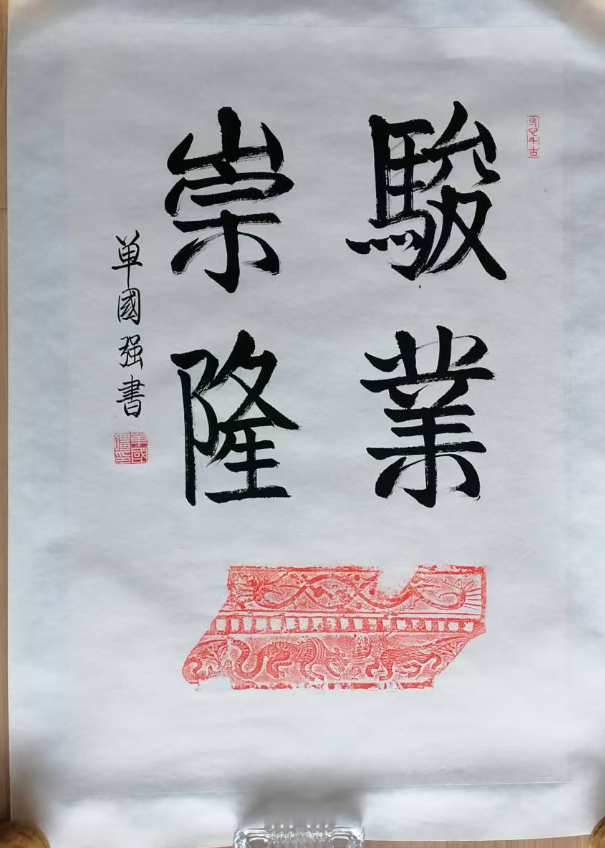 駿業
崇隆
单國强書